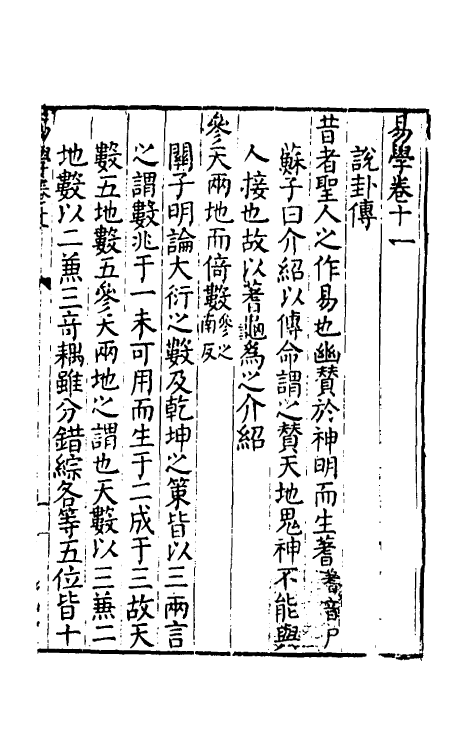 易學卷十一
說卦傳
昔者聖人之作易也幽贊於神明而生蓍蓍音尸
蘇子曰介紹以傳命謂之贊天地鬼神不能與
人接也故以蓍龜為之介紹
參天兩地而倚數參之南反
關子明論大衍之數及乾坤之策皆以三兩言
之謂數兆于一未可用而生于二成于三故天
數五地數五參天兩地之謂也天數以三兼二
地數以二兼三竒耦雖分錯綜各等五位皆十